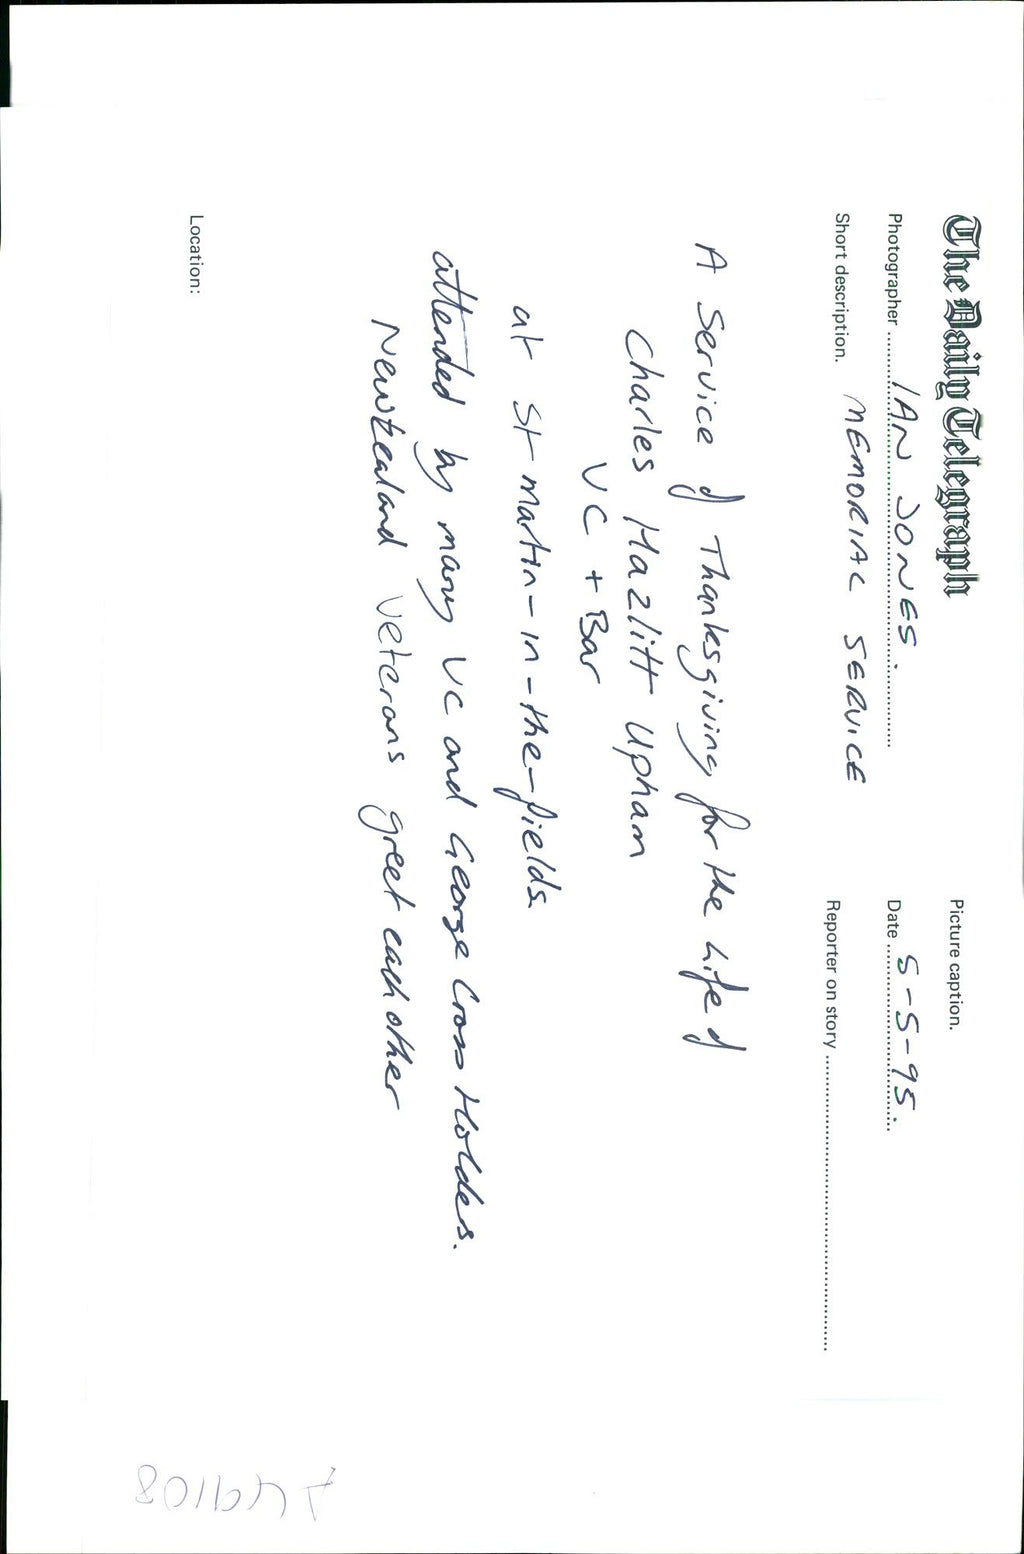 The Daily Telegraph
Picture caption.
Photographer ........ IAN JONES. ........
Date ........ 5-5-95. ........
Short description. MEMORIAL SERVICE
Reporter on story ........
A Service of Thanksgiving for the Life of
Charles Hazlitt Upham
VC + Bar
at St Martin-in-the-fields
attended by many VC and George Cross Holders.
Newzealand Veterans greet each other
Location: